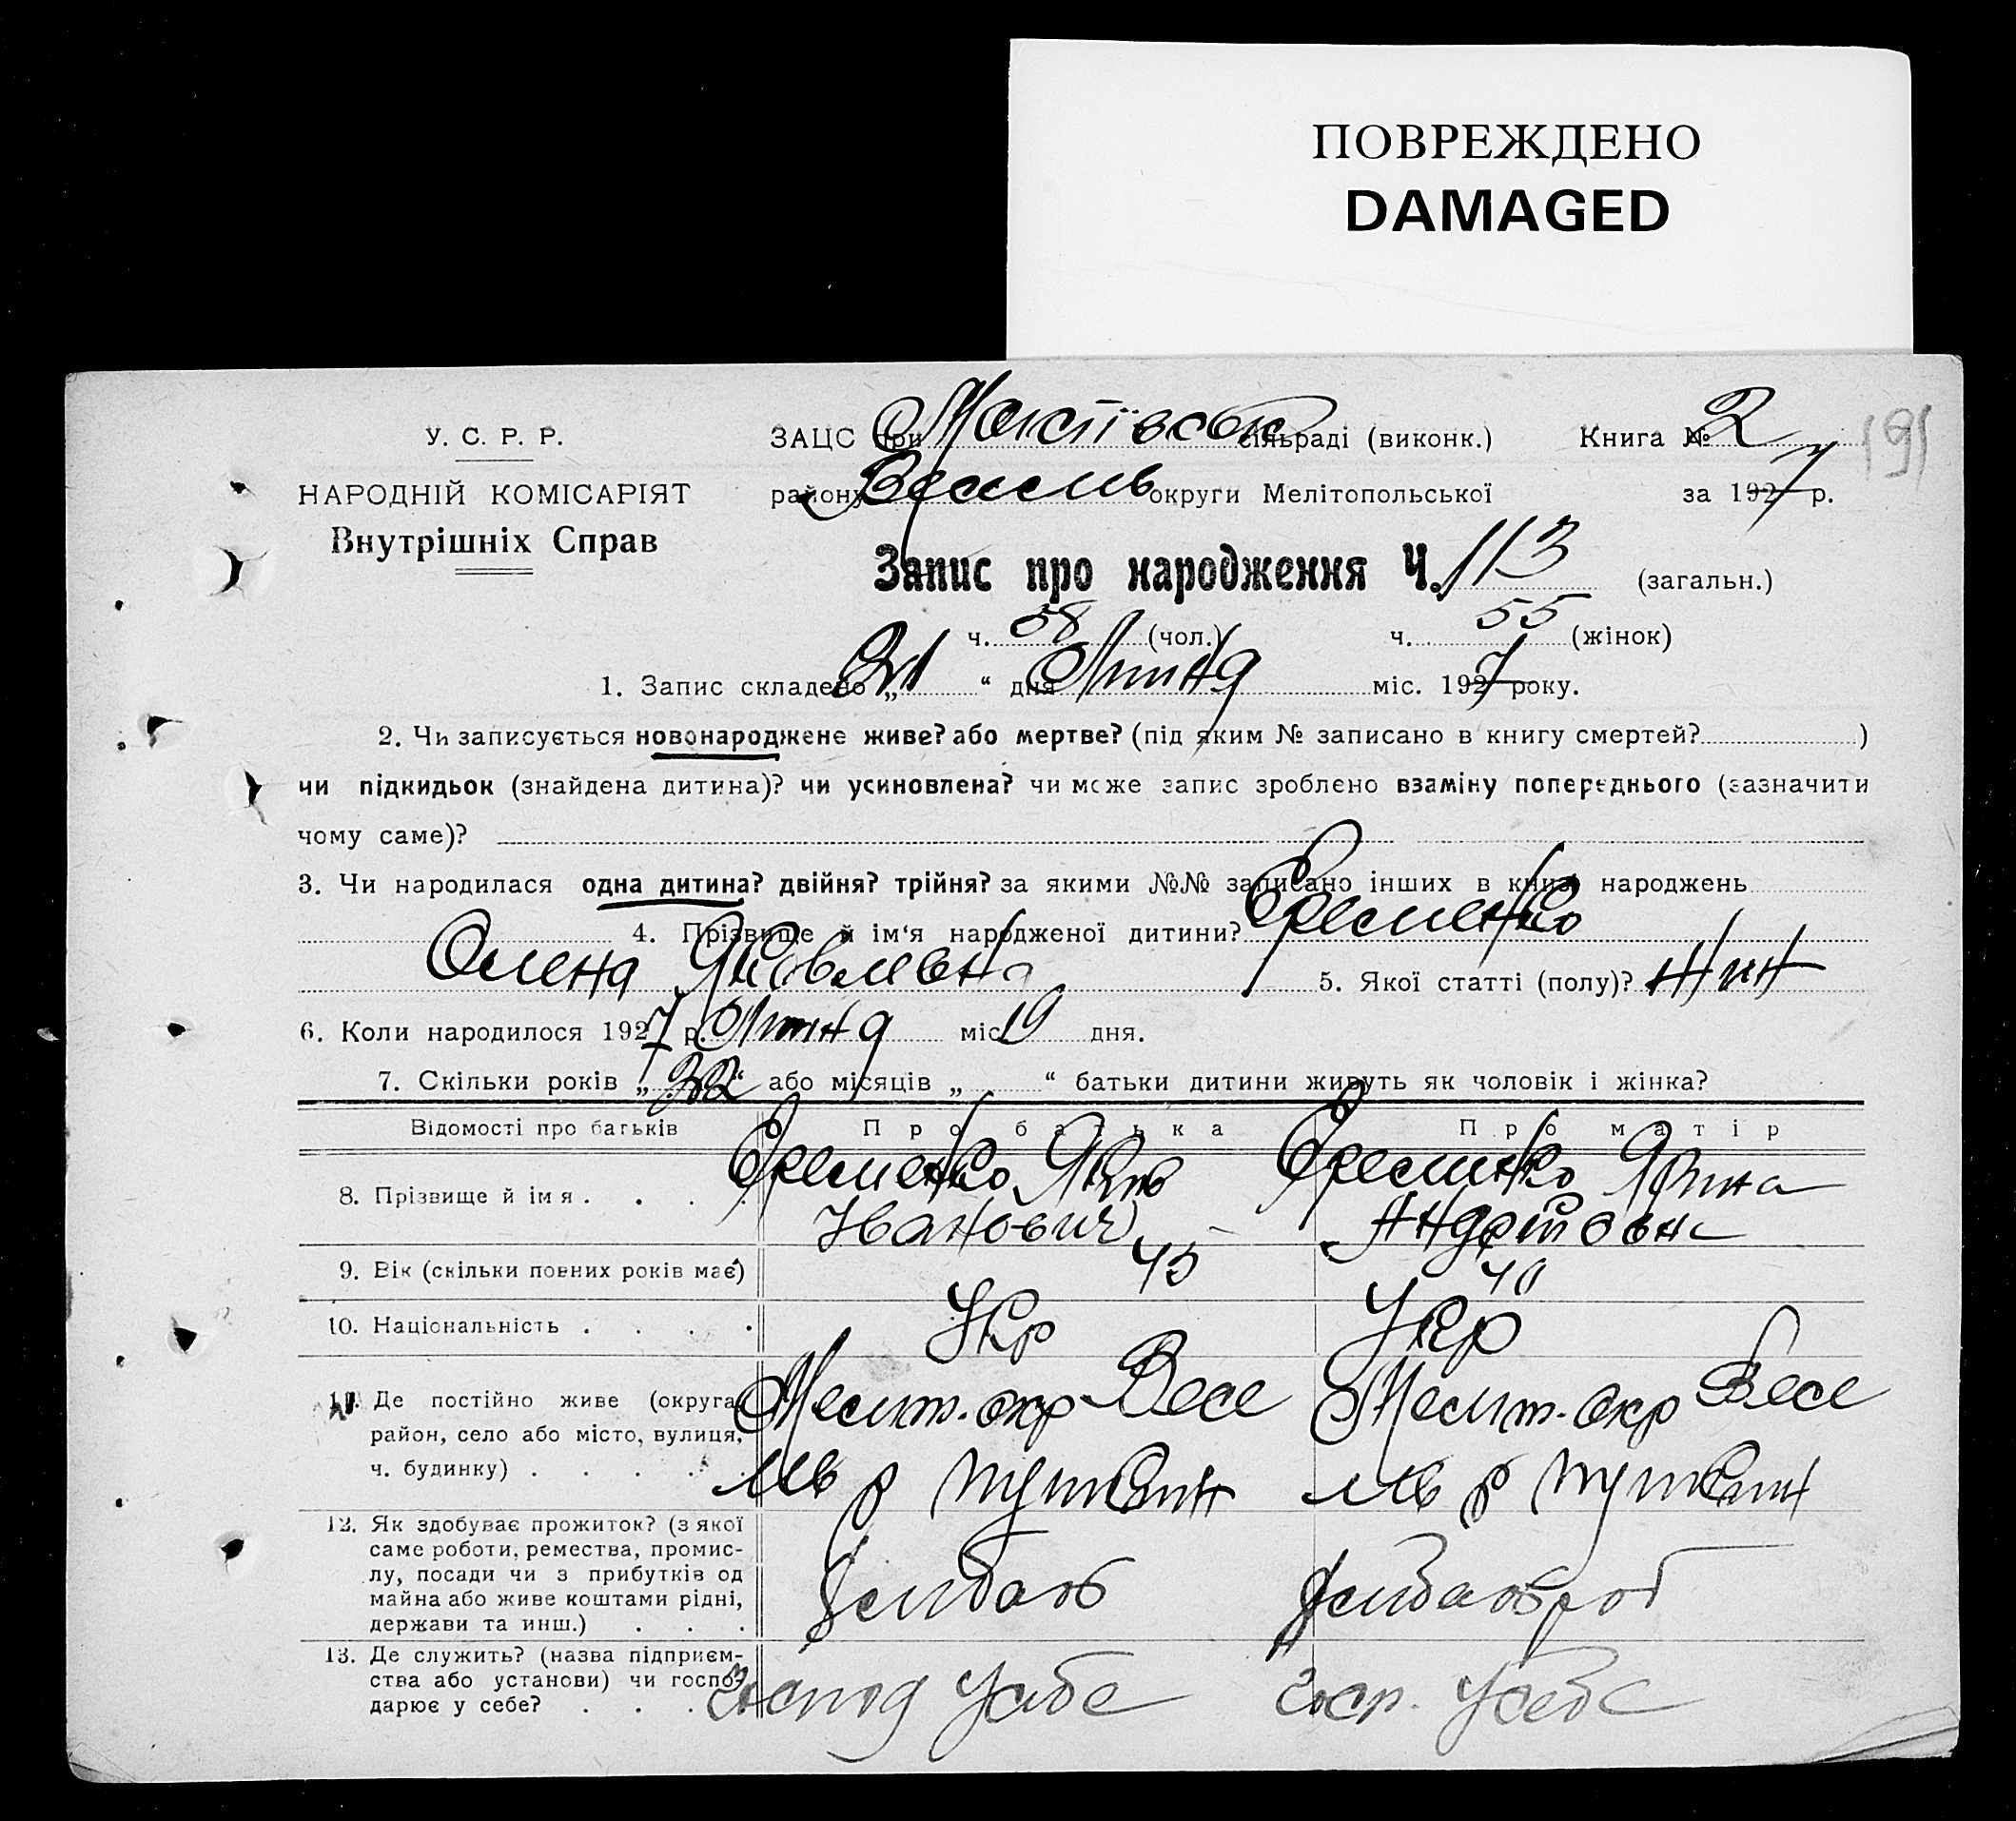 ПОВРЕЖДЕНО
DAMAGED
У. С. Р. Р.
НАРОДНІЙ КОМІСАРІЯТ
Внутрішніх Справ
ЗАЦС при сільраді (виконк.) Книга № 2
191
району Весель округи Мелітопольської за 1927 р.
Запис про народження Ч. 113 (загальн.)
ч. 58 (чол.) ч. 55 (жінок)
1. Запис складено „21“ дня Липня міс. 1927 року.
2. Чи записується новонароджене живе? або мертве? (під яким № записано в книгу смертей? )
чи підкидьок (знайдена дитина)? чи усиновлена? чи може запис зроблено взаміну попереднього (зазначити
чому саме)?
3. Чи народилася одна дитина? двійня? трійня? за якими №№ записано інших в книзі народжень
4. Прізвище й ім‘я народженої дитини? Єременко
Олена Яковлевна 5. Якої статті (полу)? жін
6. Коли народилося 1927 р. Липня міс 19 дня.
7. Скільки років „22“ або місяців „ “ батьки дитини живуть як чоловік і жінка?
Відомості про батьків Про батька Про матір
8. Прізвище й імя . . . . Єременко Яків Єременко Ярина
Іванович Андріівна
9. Вік (скільки повних років має) 45 40
10. Національність . . . . Укр Укр
11. Де постійно живе (округа, Мелит. окр Весе Мелит. окр Весе
район, село або місто, вулиця,
ч. будинку) . . . . . лів р Пушкин лів р Пушкин
12. Як здобуває прожиток? (з якої
саме роботи, ремества, промис-
лу, посади чи з прибутків од
майна або живе коштами рідні, хлібороб
держави та инш.) . . .
13. Де служить? (назва підприєм-
ства або установи) чи госпо- Господ у себе госп. у себе
дарює у себе? . . . .